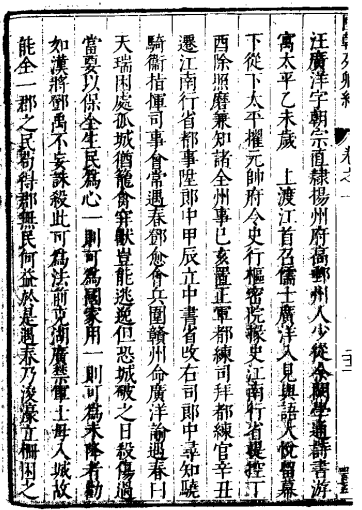 國朝列卿紀 卷之一
汪廣洋字朝宗直隸揚州府高郵州人少從余闕學通詩書游
寓太平乙未歲 上渡江首召儒士廣洋入見與語大悅留幕
下從下太平擢元帥府令史行樞密院掾史江南行省提控丁
酉除照磨兼知諸全州事己亥置正軍都練司拜都練官辛丑
遷江南行省都事陞郎中甲辰立中書省改右司郎中尋知驍
騎衛指揮司事會常遇春鄧愈會兵圍贛州命廣洋諭遇春曰
天瑞困處孤城猶籠禽穽獸豈能逃逸但恐城破之日殺傷過
當要以保全生民為心一則可為國家用一則可為未降者勸
如漢將鄧禹不妄誅殺此可為法前克湖廣禁軍士毋入城故
能全一郡之民苟得郡無民何益於是遇春乃浚濠立柵困之